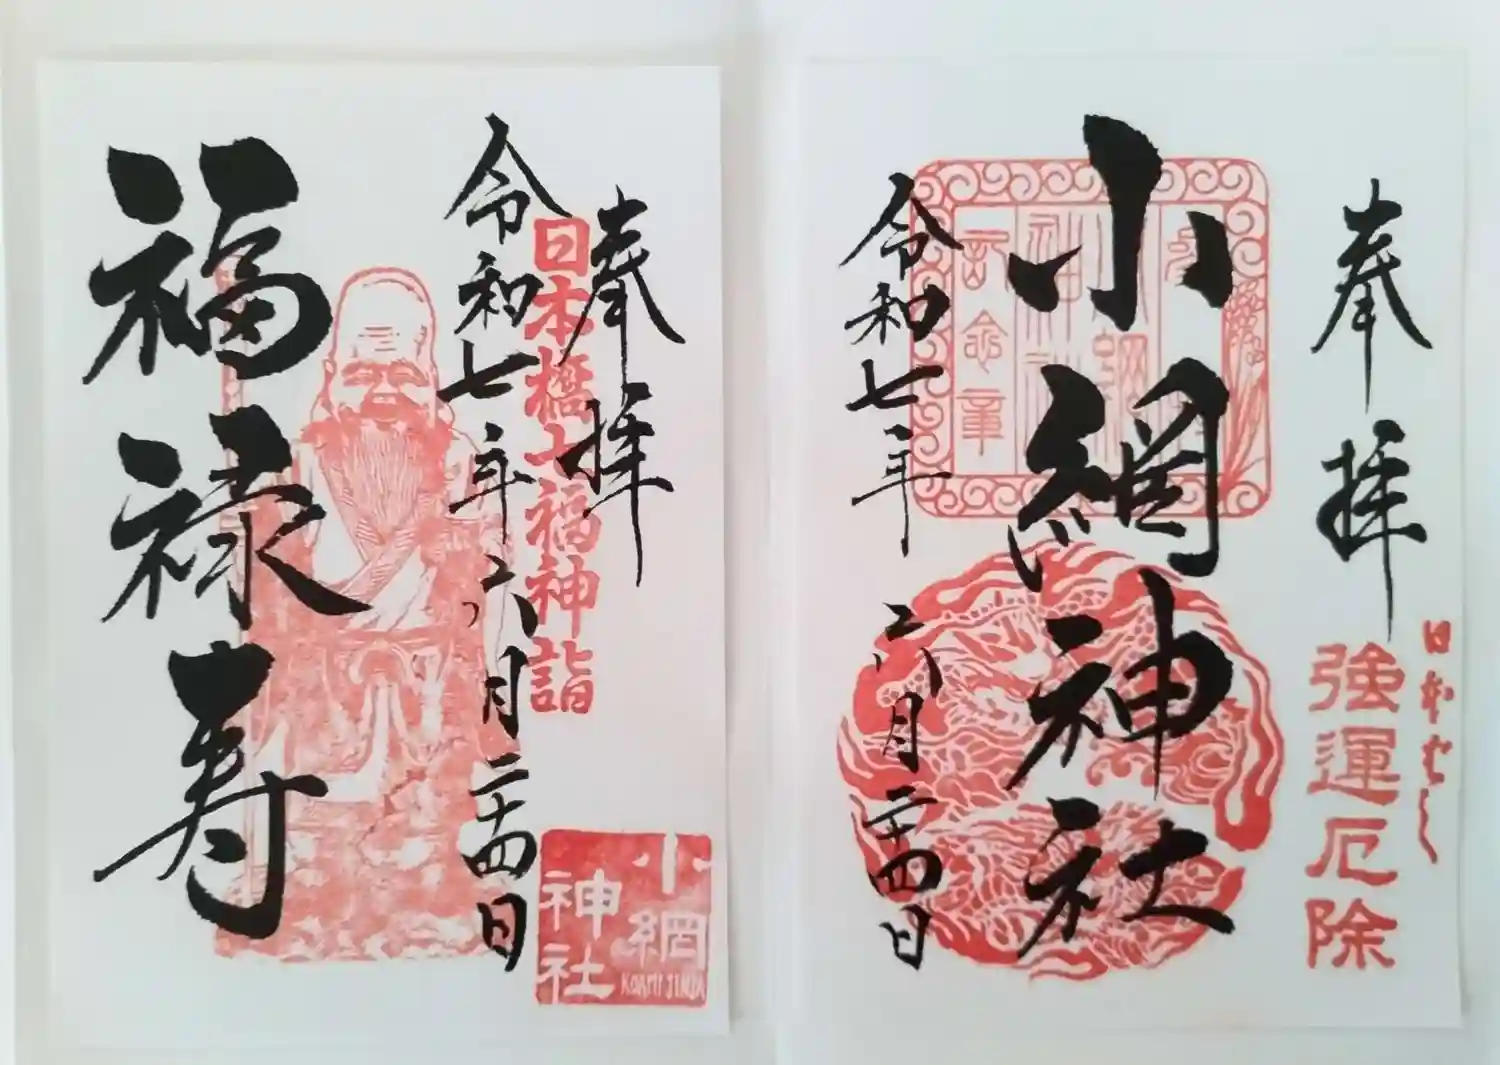 奉拝
強運厄除
小網神社
記念章
令和七年六月二十四日
奉拝
日本橋七福神詣
令和七年六月二十四日
福禄寿
小網
神社
KOAMI JINJA